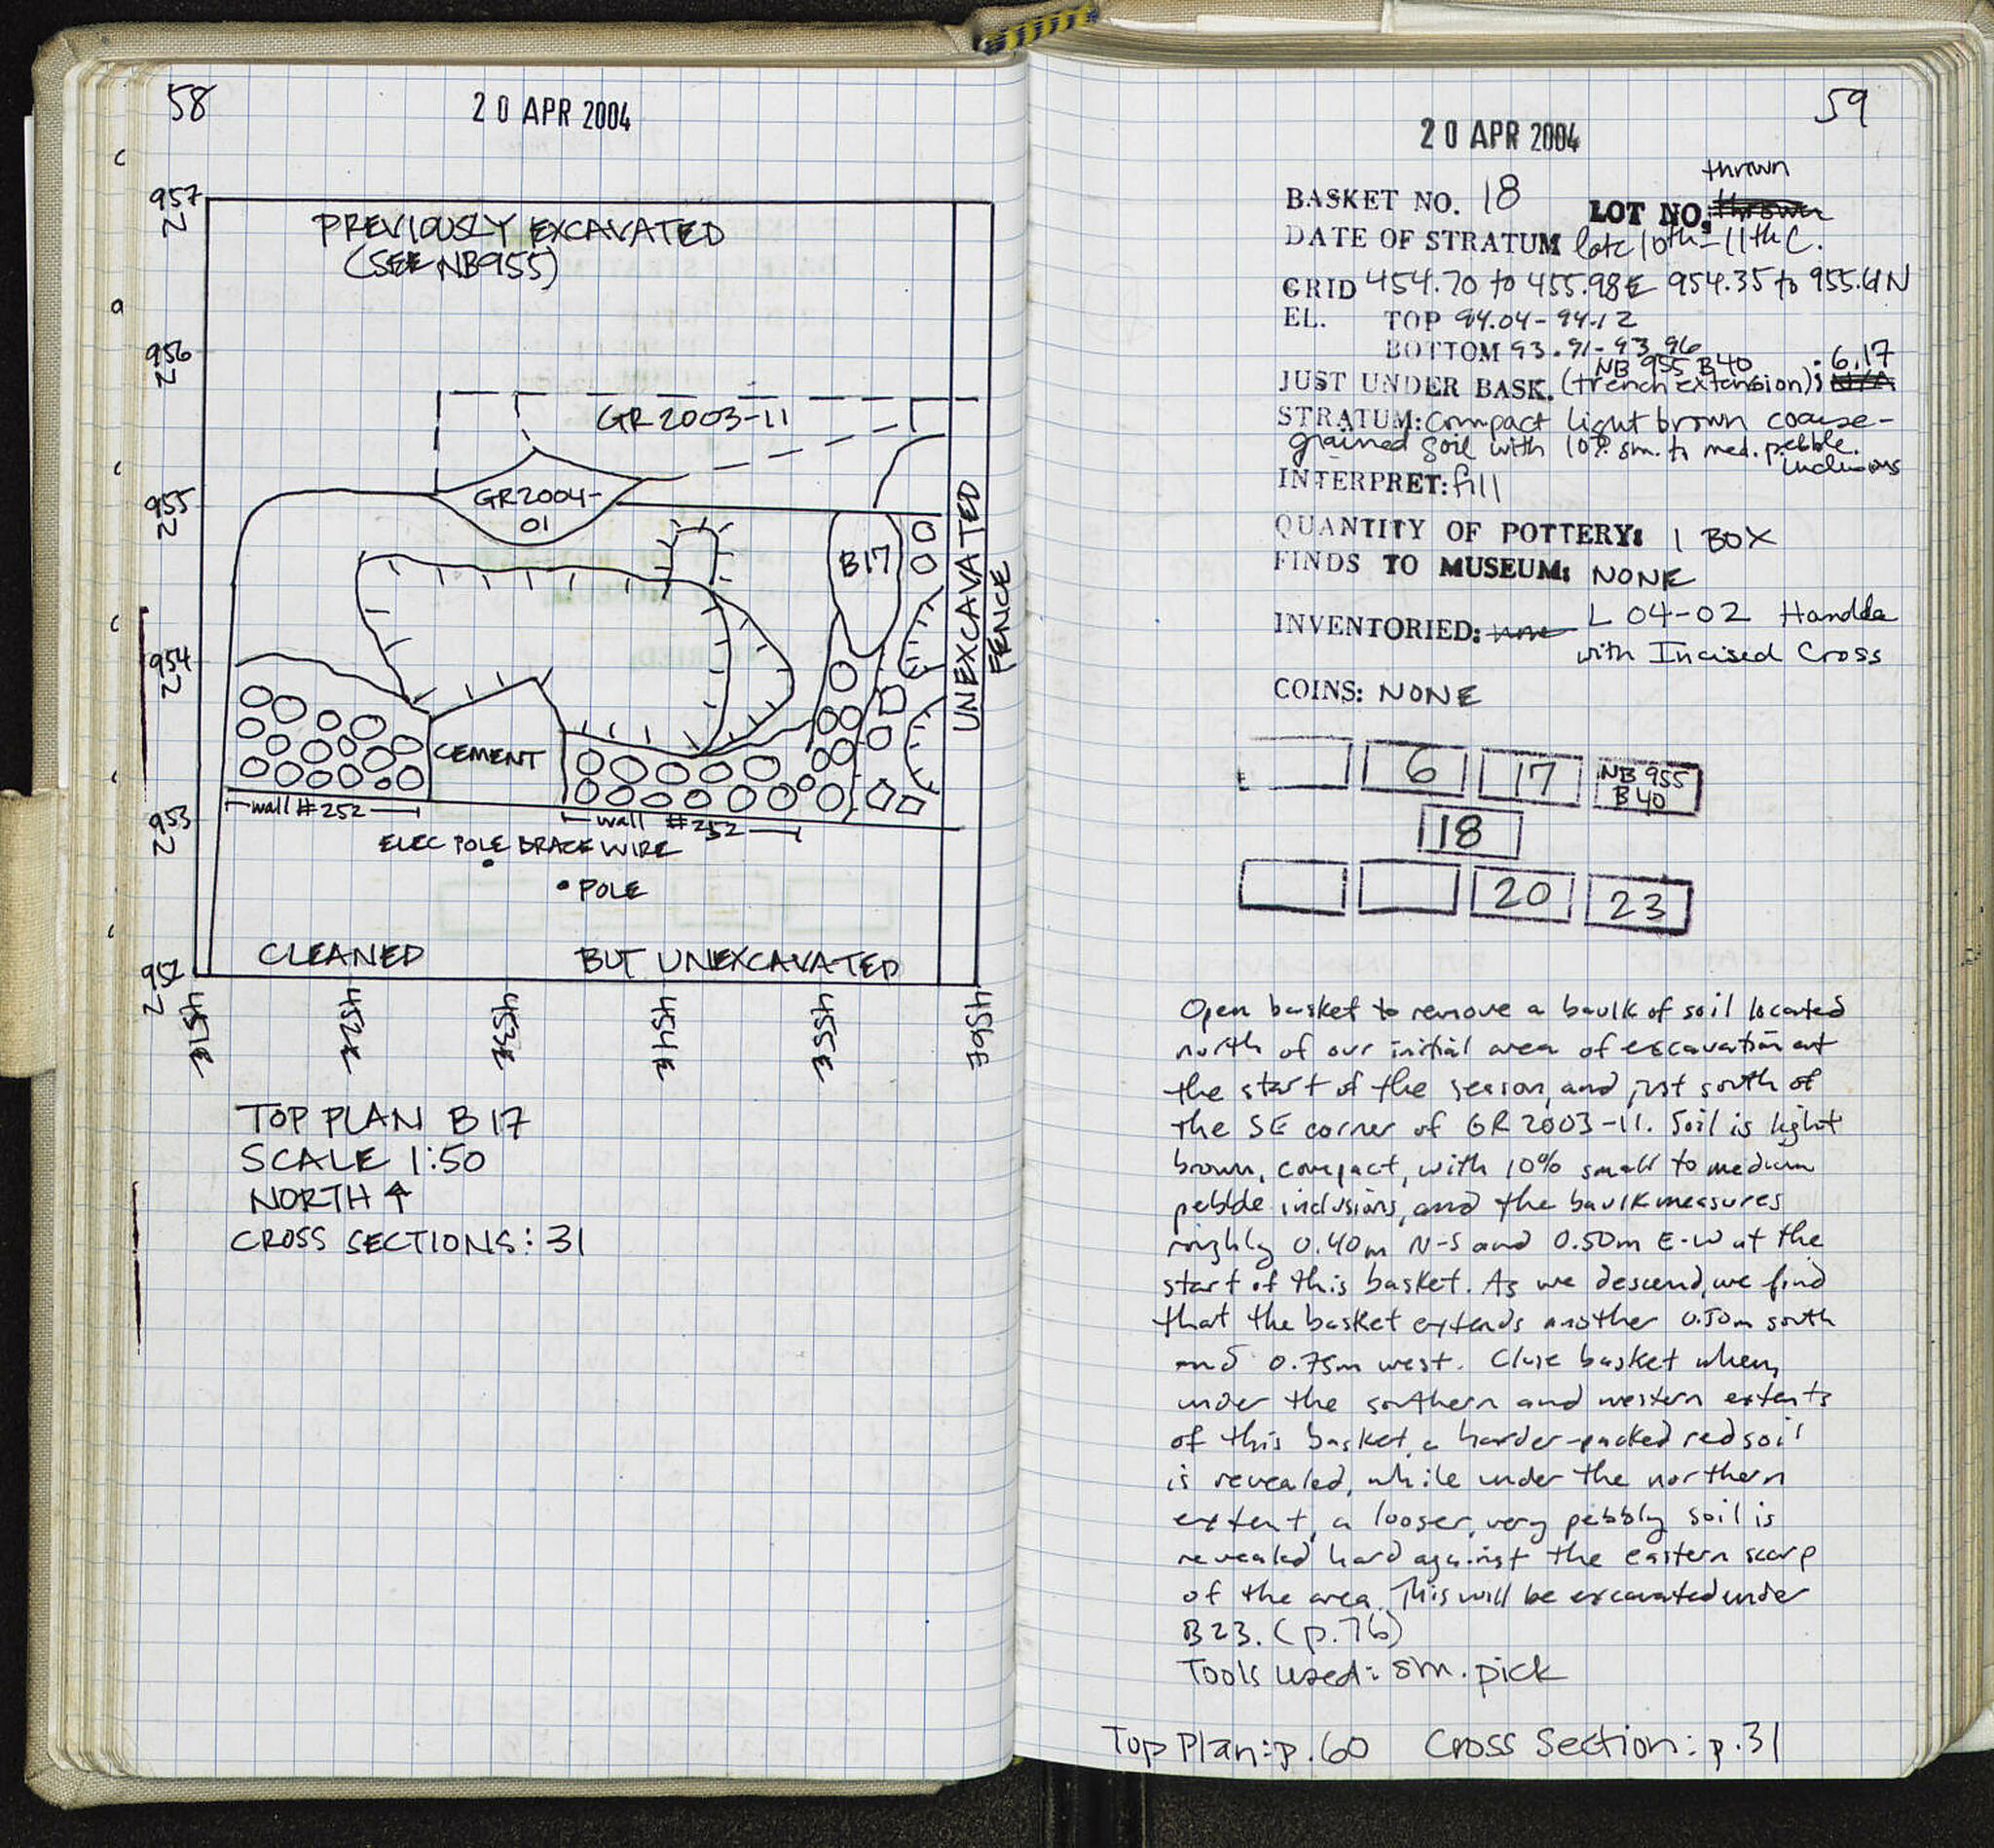 58
20 APR 2004
957
N
PREVIOUSLY EXCAVATED
(SEE NB955)
956
N
GR 2003-11
955
N
GR2004-
01
B17
UNEXCAVATED
FENCE
954
N
CEMENT
wall #252
wall #252
953
N
ELEC POLE BRACE WIRE
POLE
CLEANED BUT UNEXCAVATED
952
N
451E 452E 453E 454E 455E 456E
TOP PLAN B17
SCALE 1:50
NORTH ↑
CROSS SECTIONS: 31
59
20 APR 2004
thrown
BASKET NO. 18 LOT NO. thrown
DATE OF STRATUM late 10th-11th C.
GRID 454.70 to 455.98E 954.35 to 955.61N
EL. TOP 94.04-94.12
BOTTOM 93.91-93.96
NB 955 B40 ; 6, 17
JUST UNDER BASK. (trench extension); N/A
STRATUM: compact light brown coarse-
grained soil with 10% sm. to med. pebble
inclusions
INTERPRET: fill
QUANTITY OF POTTERY: 1 BOX
FINDS TO MUSEUM: NONE
INVENTORIED: none L 04-02 Handle
with Incised Cross
COINS: NONE
6 17 NB 955
B40
18
20 23
Open basket to remove a baulk of soil located
north of our initial area of excavation at
the start of the season, and just south of
the SE corner of GR 2003-11. Soil is light
brown, compact, with 10% small to medium
pebble inclusions, and the baulk measures
roughly 0.40m N-S and 0.50m E-W at the
start of this basket. As we descend, we find
that the basket extends another 0.50m south
and 0.75m west. Close basket when,
under the southern and western extents
of this basket, a harder-packed red soil
is revealed, while under the northern
extent, a looser, very pebbly soil is
revealed hard against the eastern scarp
of the area. This will be excavated under
B23. (p.76)
Tools used: sm. pick
Top Plan: p. 60 Cross Section: p. 31